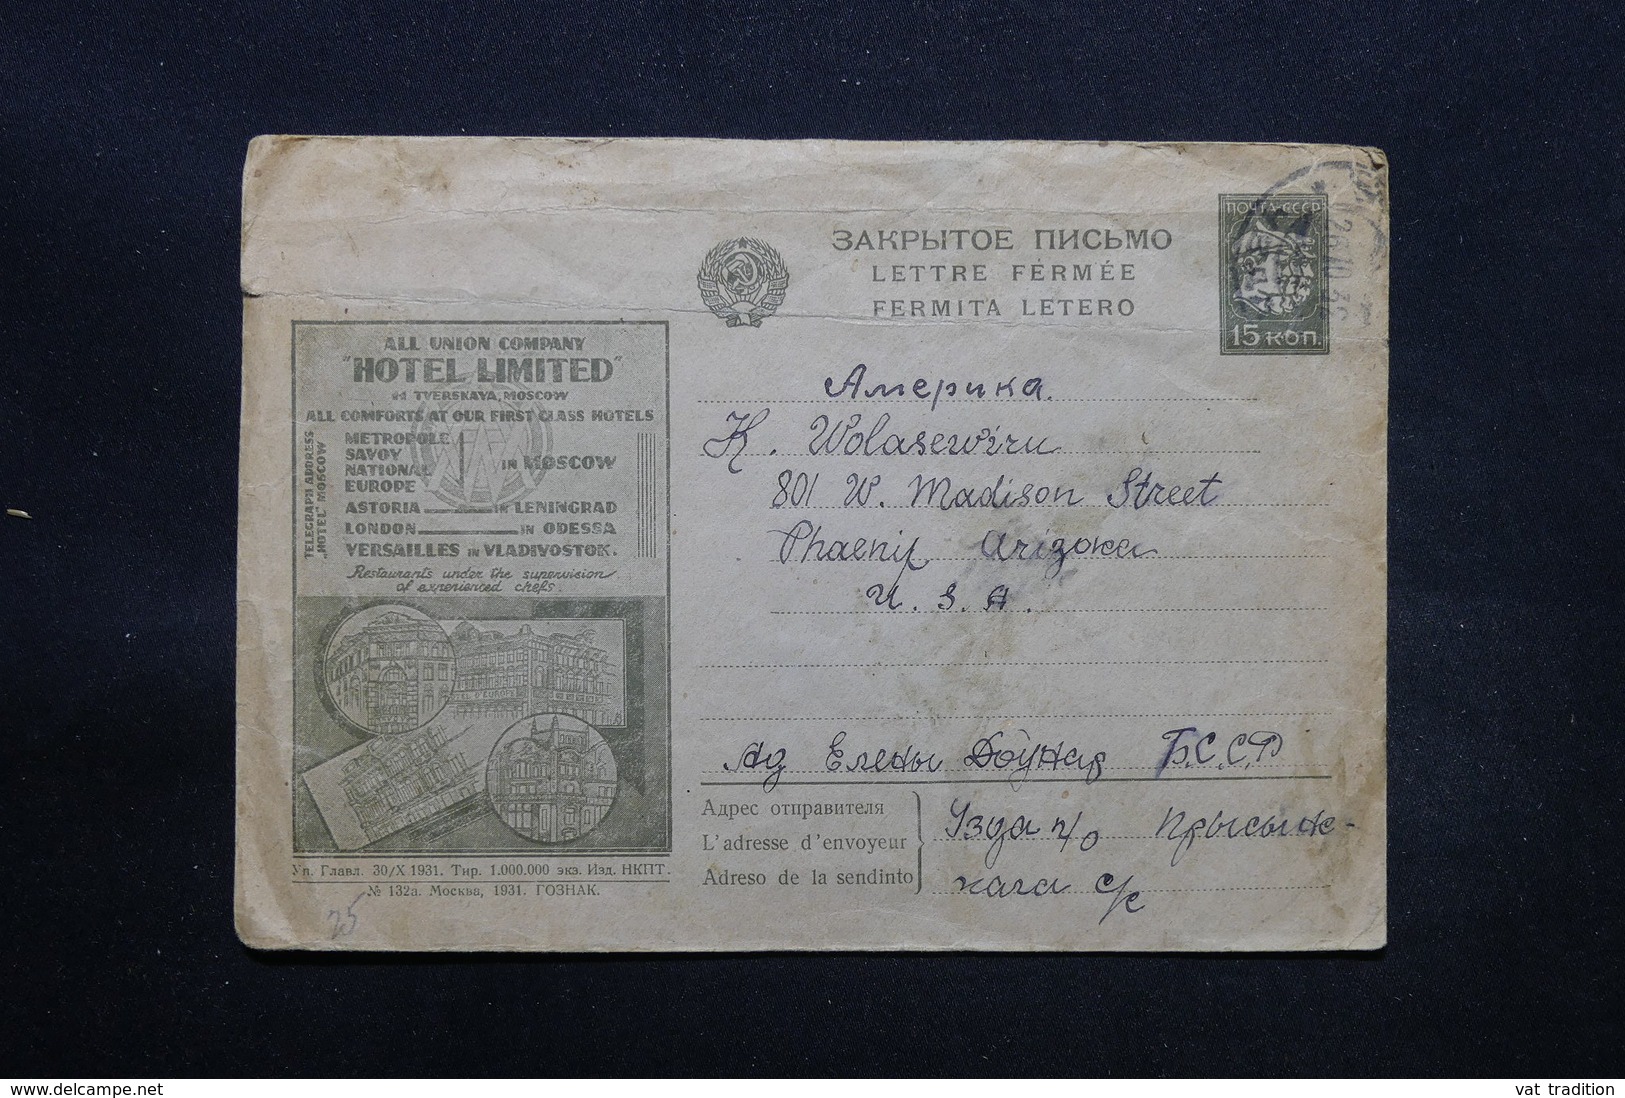 ПОЧТА СССР
15 КОП.
26.10.32
ЗАКРЫТОЕ ПИСЬМО
LETTRE FÉRMÉE
FERMITA LETERO
ALL UNION COMPANY
"HOTEL LIMITED"
TVERSKAYA, MOSCOW
ALL COMFORTS AT OUR FIRST CLASS HOTELS
TELEGRAPH ADDRESS
„HOTEL" MOSCOW
METROPOLE
SAVOY
NATIONAL
EUROPE
IN MOSCOW
ASTORIA IN LENINGRAD
LONDON IN ODESSA
VERSAILLES IN VLADIVOSTOK.
Restaurants under the supervision
of experienced chefs.
EL D'EUROPE
Уп. Главл. 30/X 1931. Тир. 1.000.000 экз. Изд. НКПТ.
№ 132а. Москва, 1931. ГОЗНАК.
25
Америка.
K. Wolasewiru
801 W. Madison Street
Phaenix Arizona
U. S. A.
Ад Елены Доўнар Б.С.С.Р
Адрес отправителя
L'adresse d'envoyeur
Adreso de la sendinto
Узда п/о Прысынк-
кага с/с
www.delcampe.net
vat_tradition